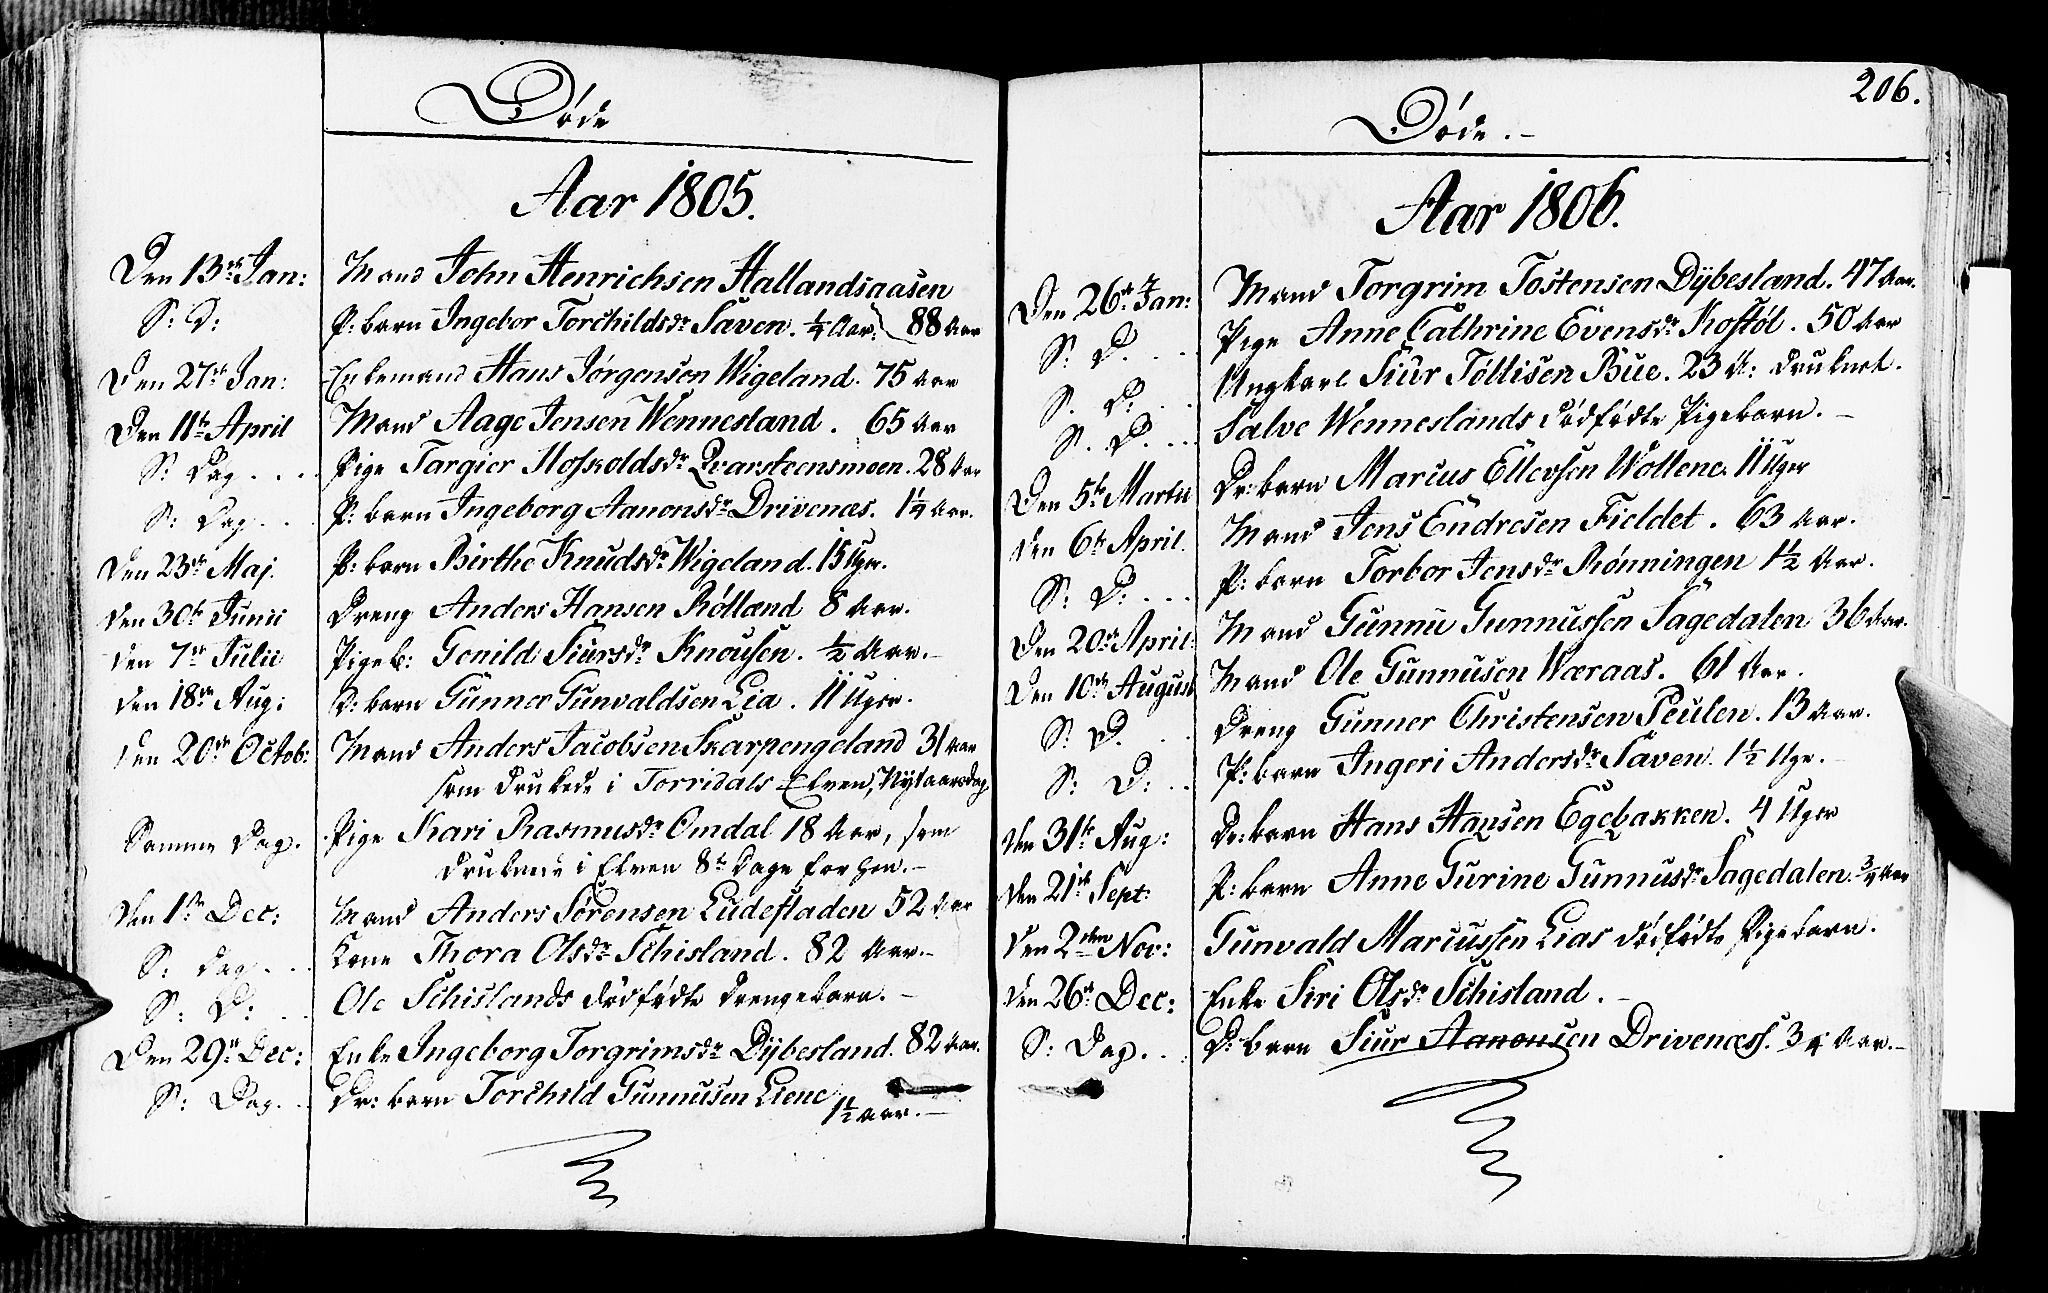 Døde
Aar 1805.
Den 13de Jan: Mand John Henrichsen Hallandsaasen
S: D: P: barn Ingebor Torchildsdr Saven. 1/4 Aar. 88 Aar
Den 27de Jan: Enkemand Hans Jørgensen Wigeland. 75 Aar
Den 11te April Mand Aage Jensen Wennesland. 65 Aar
S: Dag . . . . Pige Targier Hoskoldsdr Qvarsteensmoen. 28 Aar
S: Dag. . . Pi: barn Ingeborg Aanonsdr Drivenæs. 1 1/4 Aar.
Den 23de Maj. P: barn Birthe Knudsdr Wigeland. 15 Uger.
den 30te Junii Dreng Anders Hansen Røllænd 8 Aar.
den 7de Julii Pigeb: Gonild Siursdr Knousen. 1/2 Aar.–
den 18de Aug: D: barn Gunner Gunvaldsen Lia. 11 Uger.
den 20de Octob: Mand Anders Jacobsen Skarpengeland 31 Aar
som druknede i Torridals Elven, Nytaarsdag
Samme Dag. Pige Kari Rasmusdr Omdal 18 Aar, som
druknede i Elven 8te Dage forhen.–
den 1ste Dec: Mand Anders Sørensen Ludefladen 52 Aar
S: Dag . . . Kone Thora Olsdr Schisland. 82 Aar.–
S: D: . . . Ole Schislands dødfødte Drengebarn.–
Den 29de Dec: Enke Ingeborg Torgrimsdr Dybesland. 82 Aar.
S: Dag. . . Dr: barn Torchild Gunnusen Liene
1 1/2 Aar.–
206.
Døde.–
Aar 1806.
Den 26de Jan: Mand Torgrim Tostensen Dybesland. 47 Aar.
S: D. . . . Pige Anne Cathrine Evensdr Kostøl. 50 Aar
S. D: . . . Ungkarl Siur Tøllisen Bue. 23 A: druknet.
S. D. . . . Salve Wenneslands dødfødte Pigebarn.–
Den 5te Martii Dr: barn Marcus Ellevsen Wollene. 11 Uger
den 6te April. Mand Jens Endresen Fieldet. 63 Aar.
S: D: . . . P: barn Torbor Jensdr Rønningen 1 1/2 Aar.
Den 20de April: Mand Gunnu Gunnussen Sagedalen 36 Aar.
Den 10de August Mand Ole Gunnusen Wæraas. 61 Aar.
S: D. . . Dreng Gunner Christensen Peulen. 13 Aar.
S: D: . . P: barn Ingeri Andersdr Saven. 1 1/2 Uge.–
den 31te Aug: Dr: barn Hans Hansen Egebakken. 4 Uger
den 21de Sept: P: barn Anne Gurine Gunnusdr Sagedalen. 3/4 Aar
den 2den Nov: Gunvald Marcussen Lias dødfødte Pigebarn.
den 26de Dec: Enke Siri Olsdr Schisland.–
S: Dag. . . D: barn Siur Aanonsen Drivenæss. 3/4 Aar.–